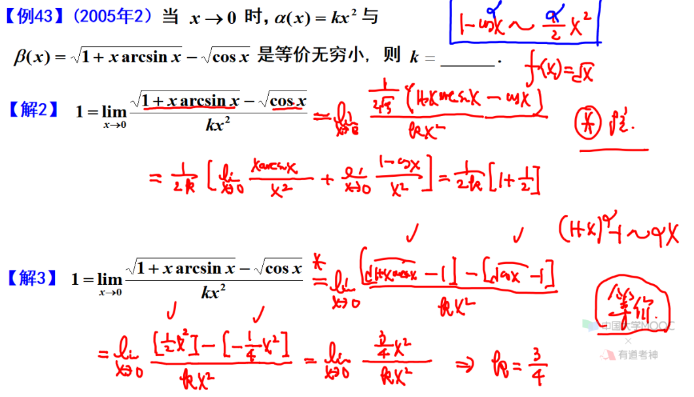 【例43】(2005年2) 当 x→0 时, α(x) = kx² 与
1-cos^α x ~ α/2 x²
β(x) = √(1+x arcsin x) - √(cos x) 是等价无穷小, 则 k = ______ .
f(x)=√x
【解2】 1 = lim_{x→0} (√(1+x arcsin x) - √(cos x))/(kx²) = lim_{x→0} (1/(2√ξ) (1+x arcsin x - cos x))/(kx²)
= 1/(2k) [lim_{x→0} (x arcsin x)/x² + lim_{x→0} (1-cos x)/x²] = 1/(2k) [1+1/2]
(1+x)^α-1 ~ αx
【解3】 1 = lim_{x→0} (√(1+x arcsin x) - √(cos x))/(kx²) = lim_{x→0} ([√(1+x arcsin x) -1] - [√(cos x) -1])/(kx²)
等价.
= lim_{x→0} ([1/2 x²] - [-1/4 x²])/(kx²) = lim_{x→0} (3/4 x²)/(kx²) ⇒ k = 3/4
中国大学MOOC
×
有道考神